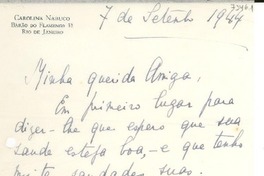 7 de Setemb 1944
CAROLINA NABUCO
BARÃO DO FLAMENGO 22
RIO DE JANEIRO
Minha querida Amiga,
Em primeiro lugar para
dizer-lhe que espero que sua
saude esteja boa, - e que tenho
muitas saudades suas.